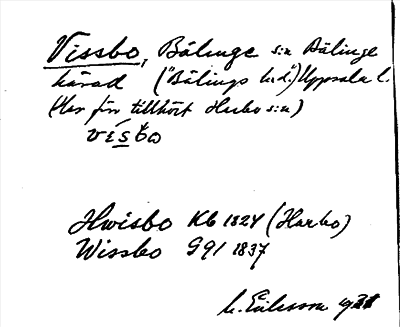 Vissbo, Bälinge s:n Bälinge
härad ("Bälings h.d.") Uppsala l.
(Har förr tillhört Harbo s:n)
vísbo
Hwisbo Kb 1824 (Harbo)
Wissbo G91 1837
M. Eriksson